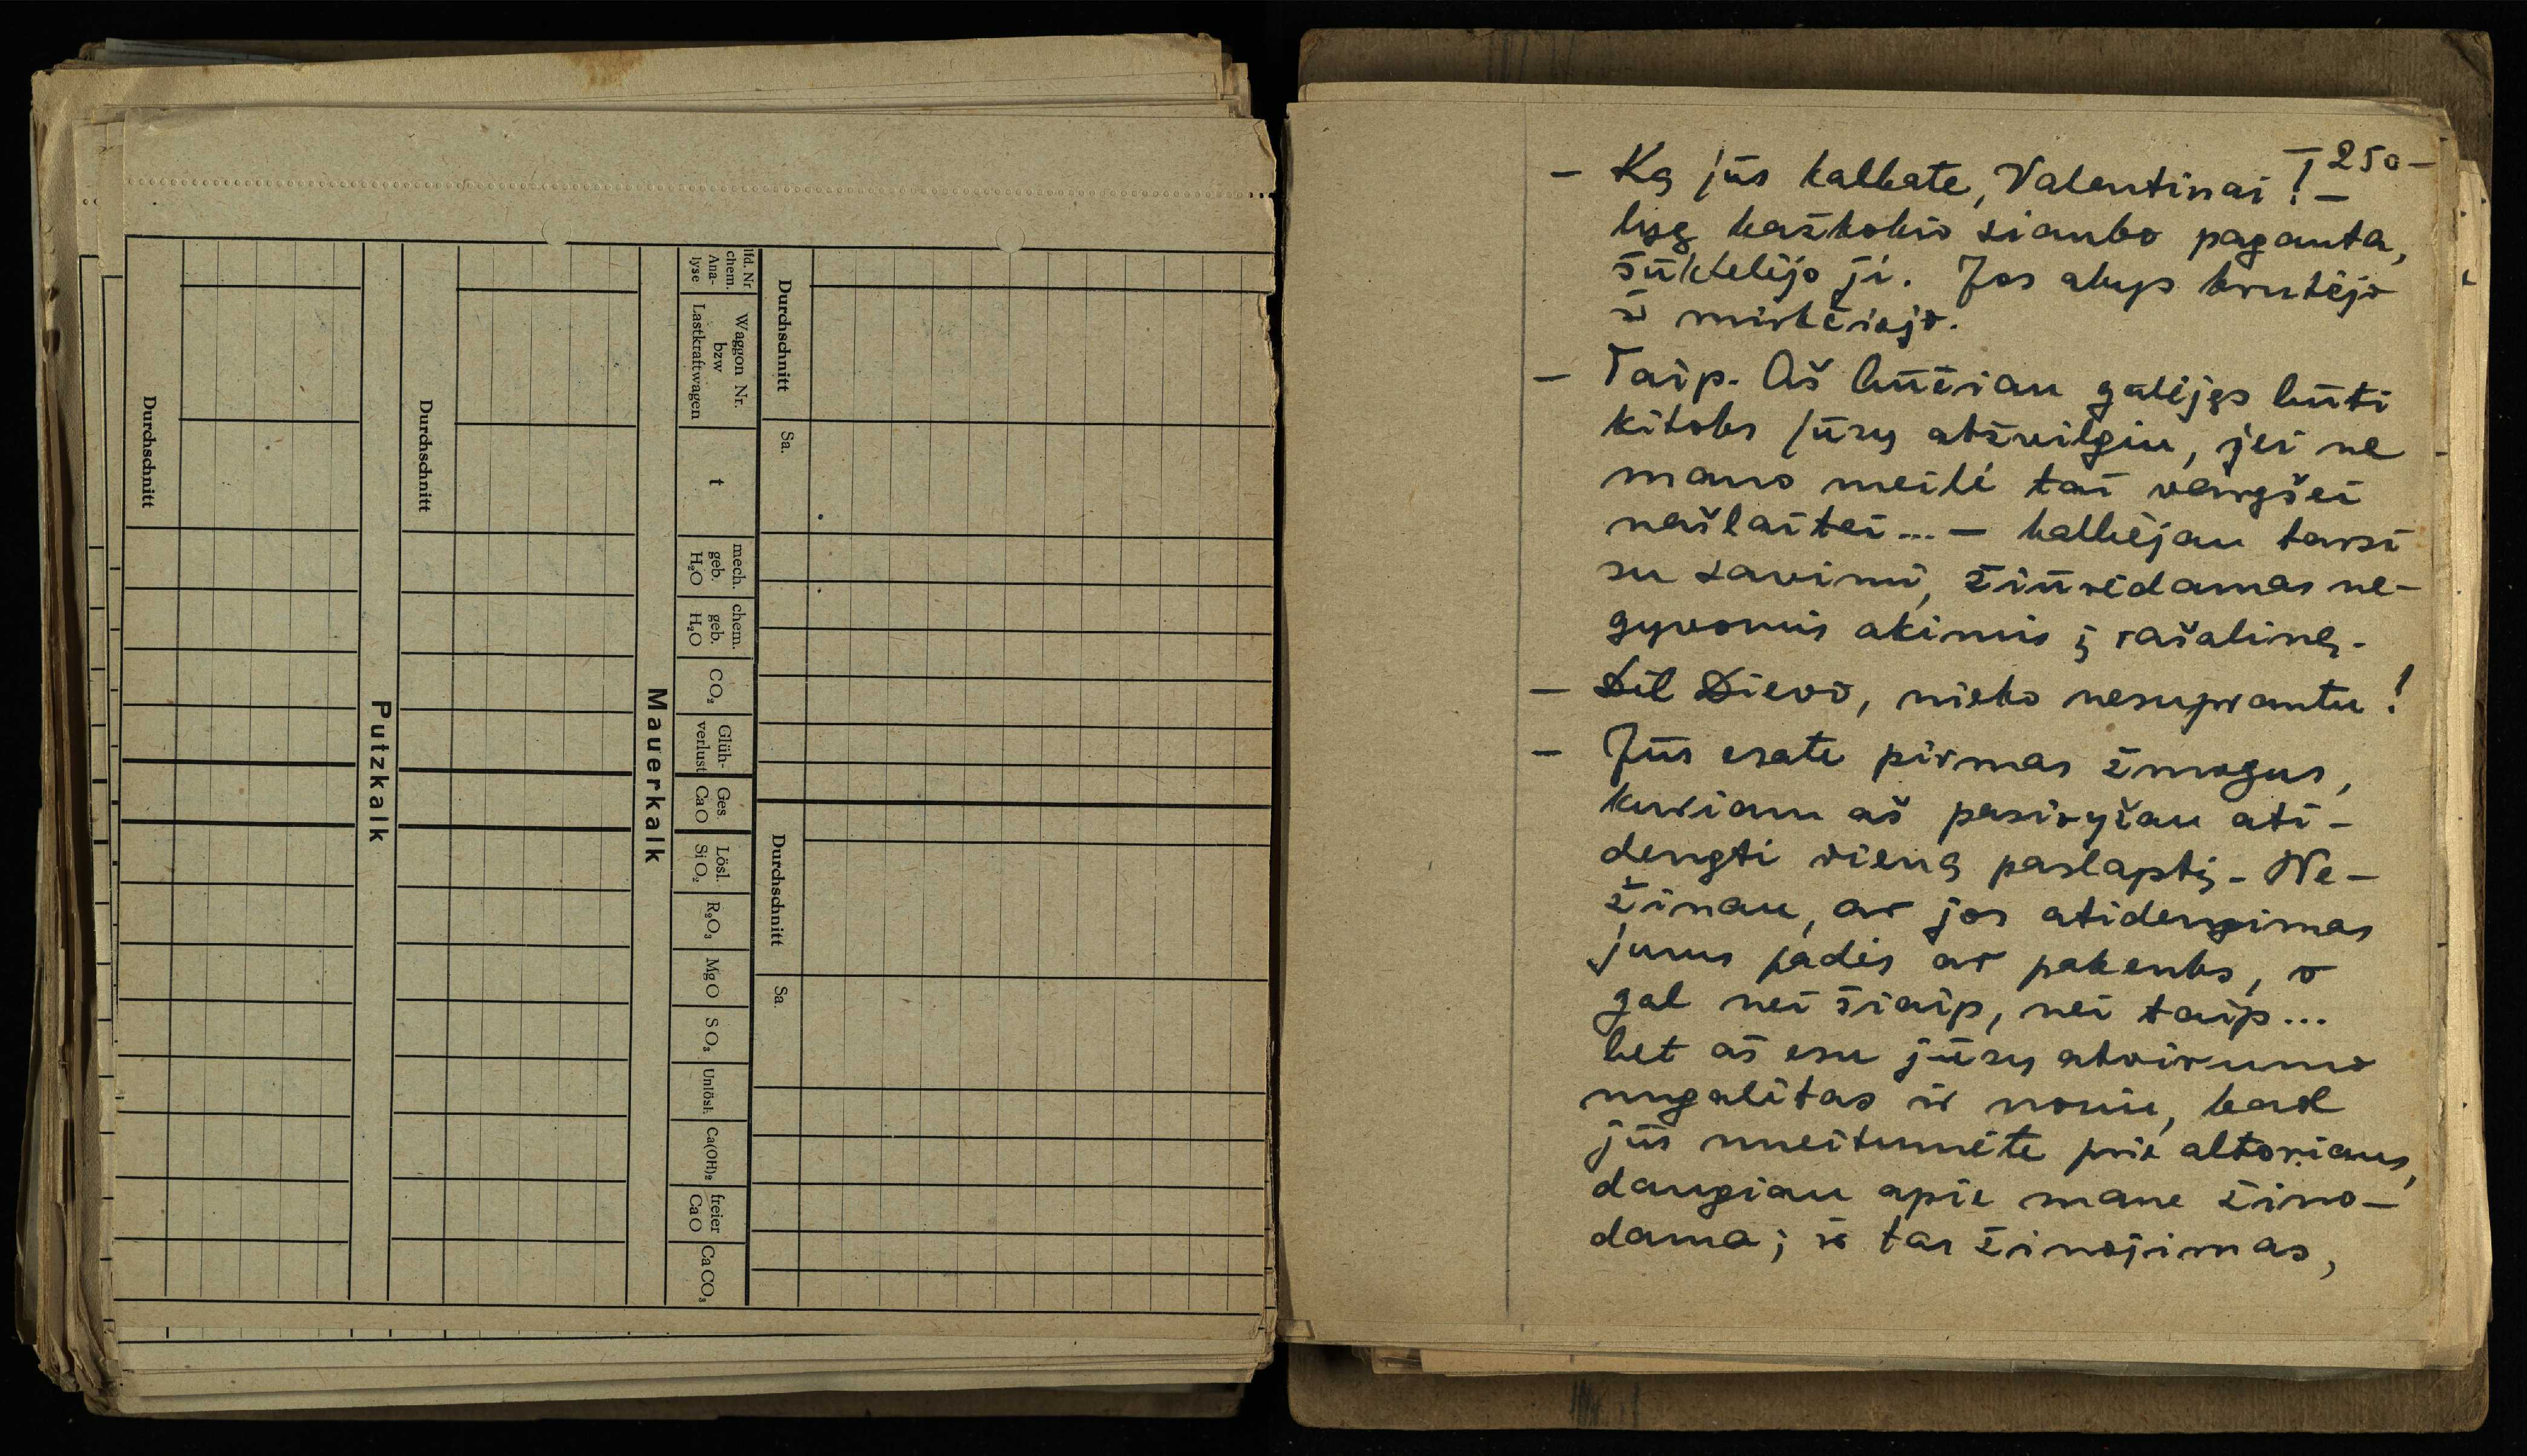 Durchschnitt
Sa.
Durchschnitt
Sa.
lfd. Nr
chem.
Ana-
lyse
Waggon Nr.
bzw
Lastkraftwagen
t
mech.
geb.
H₂O
chem.
geb.
H₂O
CO₂
Glüh-
verlust
Ges.
CaO
Lösl.
SiO₂
R₂O₃
MgO
SO₃
Unlösl.
Ca(OH)₂
freier
CaO
CaCO₃
Mauerkalk
Durchschnitt
Putzkalk
Durchschnitt
– 250 –
– Ką jūs kalbate, Valentinai! –
lyg kažkokio siaubo pagauta,
šūktelėjo ji. Jos akys krutėjo
ir mirkčiojo.
– Taip. Aš būčiau galėjęs būti
kitoks jūsų atžvilgiu, jei ne
mano meilė tai vargšei
našlaitei... – kalbėjau tarsi
su savimi, žiūrėdamas ne-
gyvomis akimis į rašalinę.
– Dėl Dievo, nieko nesuprantu!
– Jūs esate pirmas žmogus,
kuriam aš pasiryžau ati-
dengti vieną paslaptį. Ne-
žinau, ar jos atidengimas
jums padės ar pakenks, o
gal nei šiaip, nei taip...
bet aš esu jūsų atvirumo
nugalėtas ir noriu, kad
jūs nueitumėte prie altoriaus,
daugiau apie mane žino-
dama; ir tas žinojimas,